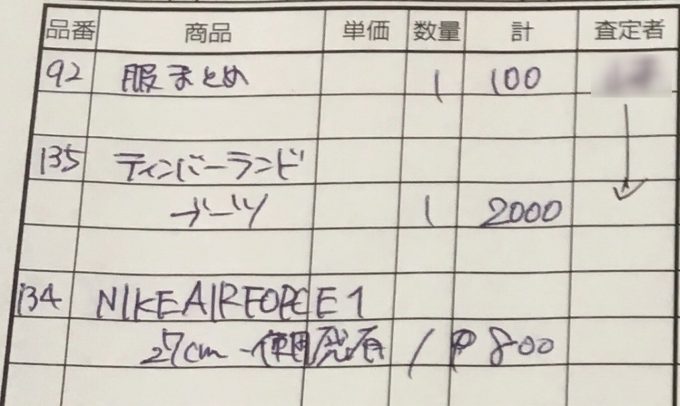 品番 商品 単価 数量 計 査定者
92 服まとめ 1 100
135 ティンバーランド
ブーツ 1 2000
134 NIKE AIR FORCE 1
27cm 使用感有 1 800